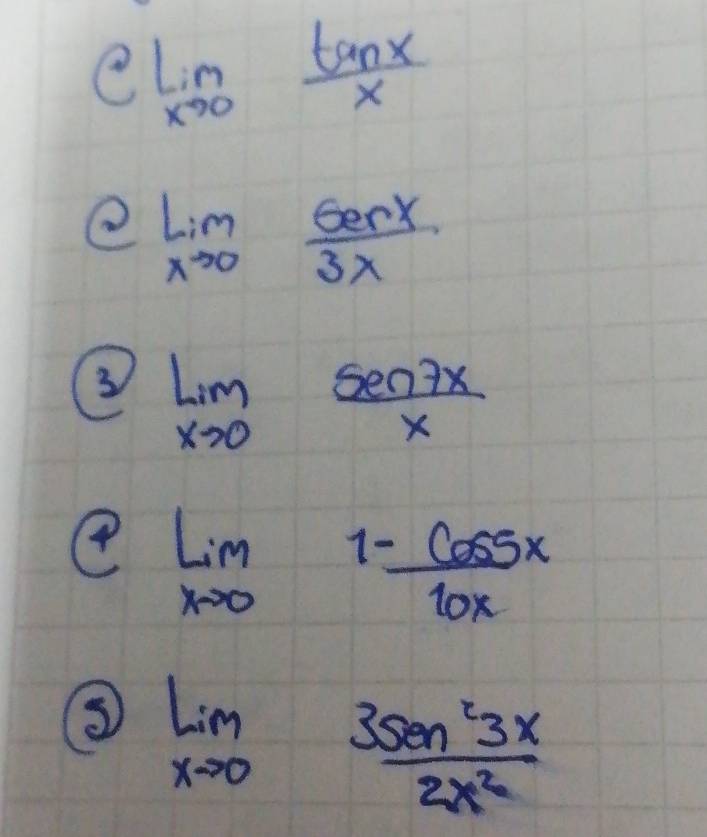 ① Lim x→0 tanx / x
② Lim x→0 senx / 3x
③ Lim x→0 sen7x / x
④ Lim x→0 1 - Cos5x / 10x
⑤ Lim x→0 3sen²3x / 2x²